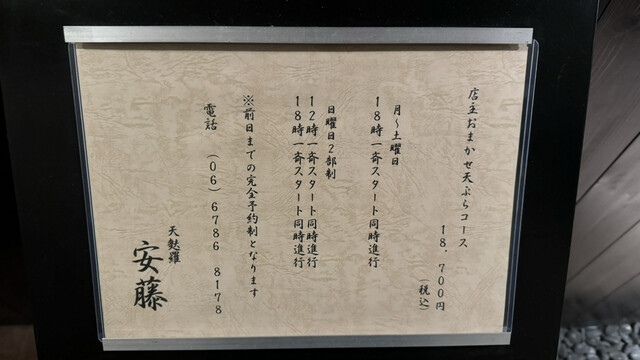 店主おまかせ天ぷらコース
18,700円
(税込)
月~土曜日
18時一斉スタート同時進行
日曜日2部制
12時一斉スタート同時進行
18時一斉スタート同時進行
※前日までの完全予約制となります
電話 (06)6786 8178
天麩羅
安藤